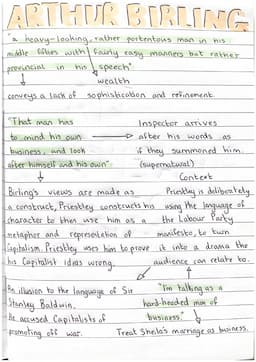 ARTHUR BIRLING
"a heavy-looking, rather portentous man in his
middle fifties with fairly easy manners but rather
provincial in his speech"
wealth
conveys a lack of sophistication and refinement.
"That man has
to mind his own
business, and look
after himself and his own"
Inspector arrives
after his words as
if they summoned him.
(supernatural)
Context
Birling's views are made as
a construct, Priestley constructs his
character to then use him as a
metaphor and represtation of
Capitalism. Priestley uses him to prove
his Capitalist ideas wrong.
Priestley is deliberately
using the language of
the Labour Party
manifesto, to turn
it into a drama the
audience can relate to.
An illusion to the language of Sir
Stanley Baldwin.
He accused Capitalists of
promoting off war.
"I'm talking as a
hard-headed man of
business."
Treat Sheila's marriage as business.